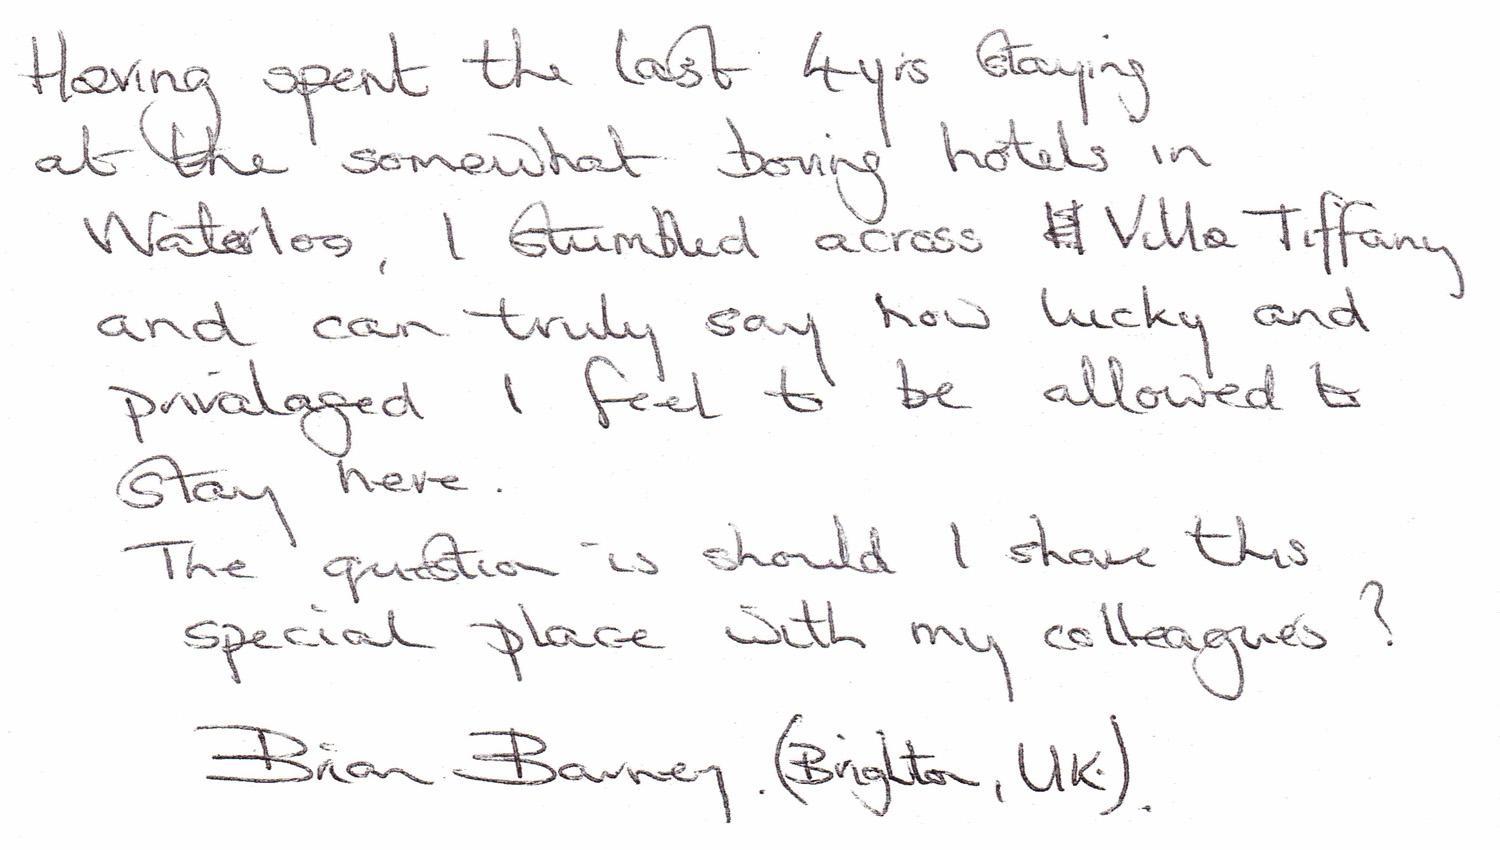 Having spent the last 4yrs staying
at the somewhat boring hotels in
Waterloo, I stumbled across Villa Tiffany
and can truly say how lucky and
privalaged I feel to be allowed to
stay here.
The question is should I share this
special place with my colleagues?
Brian Barney. (Brighton, UK).